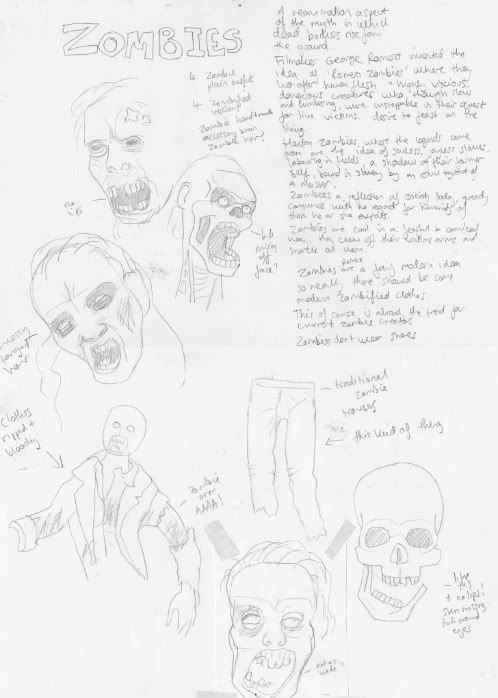 ZOMBIES
4 Zombie
plain outfits
4 Zombified
Zombie handmade
accessory brain
Zombie hair!
A reanimation aspect
of the myth in which
dead bodies rise from
the ground.
Filmaker George Romero invented the
idea of 'Romero Zombies' where they
lust after human flesh - highly viscious,
dangerous creatures who though slow
and lumbering, were unstoppable in their quest
for live victims. desire to feast on the
living.
Haitan Zombies, where the legends come
from are the idea of souless, slaves,
labouring in fields, a shadow of their former
self, bound in slavery by an
Zombies a reflection of society today, greedy
than he or she exports.
Zombies are cool in a fearful + comical
way, they chew off their victims arms and
snarle at them.
Zombies are a fairly modern idea
Romero
so really, there should be some
modern Zombified clothes.
This of course is already the trend for
current zombie creators
Zombies don't wear shoes
no lips
missing
off
face?
messy
hair
Clothes
ripped +
bloody
Zombie
arm
AAAA!
traditional
Zombie
trousers
this kind of thing
like
+ no lips!
skin missing
dark around
eyes